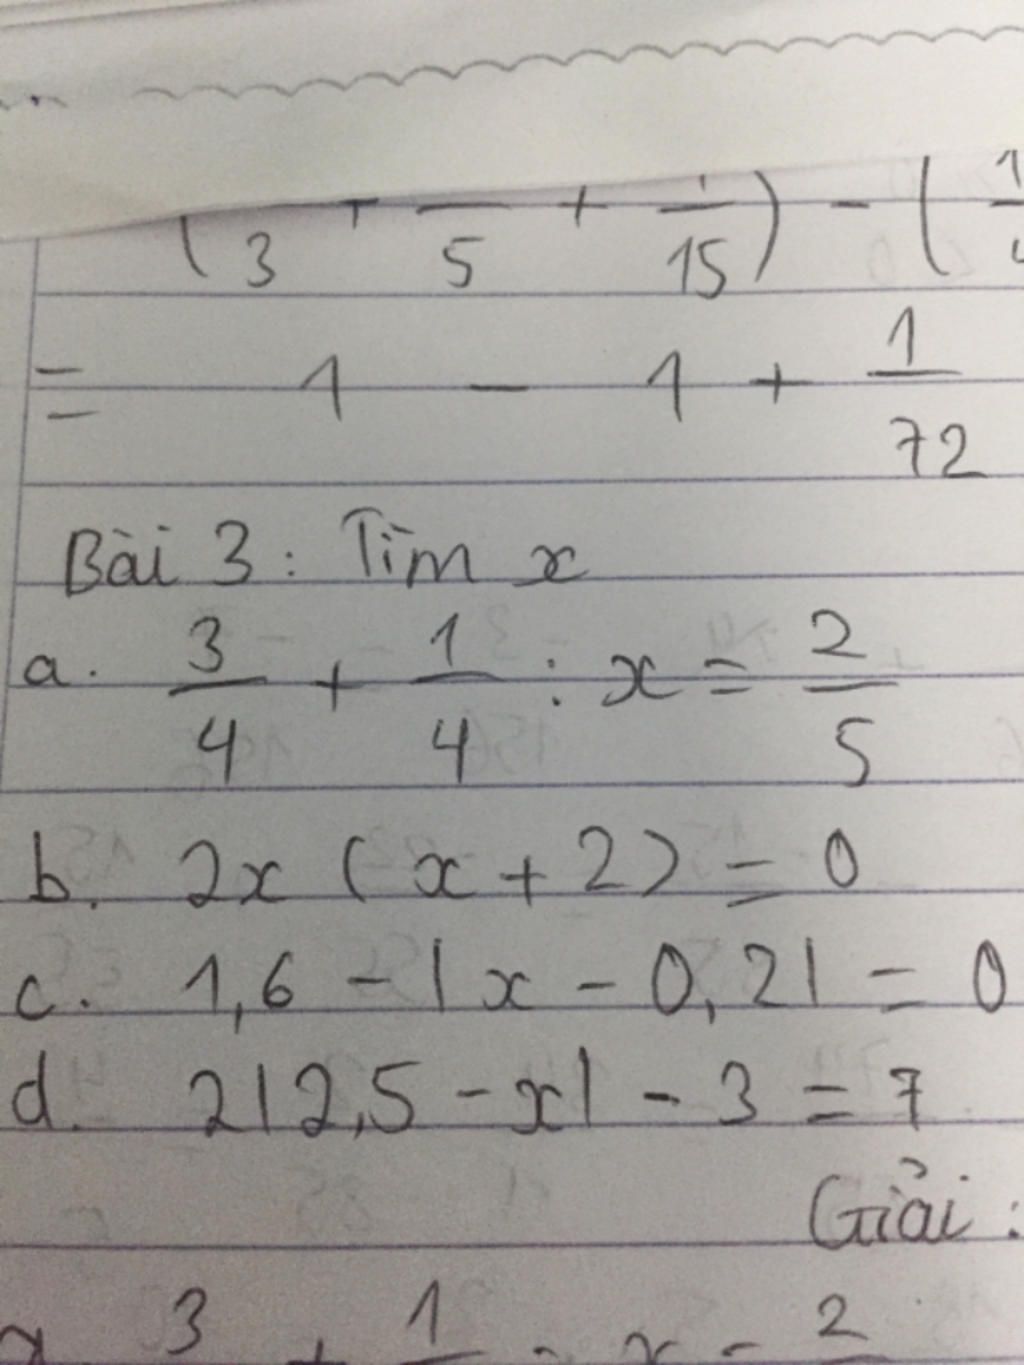 ( /3 + /5 + /15 ) - ( 1/
= 1 - 1 + 1/72
Bài 3: Tìm x
a. 3/4 + 1/4 : x = 2/5
b. 2x (x + 2) = 0
c. 1,6 - |x - 0,2| = 0
d. 2|2,5 - x| - 3 = 7
Giải:
a. 3 + 1 : x = 2